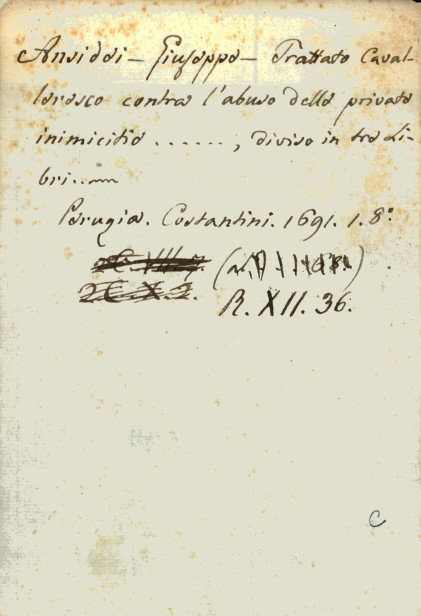 Ansidei - Giuseppe - Trattato Caval-
leresco contra l'abuso delle private
inimicitie ......, diviso in tre Li-
bri....
Perugia. Costantini. 1691. 1. 8.°
2C. VIII. 7.
2C. X. 2.
R. XII. 36.
C